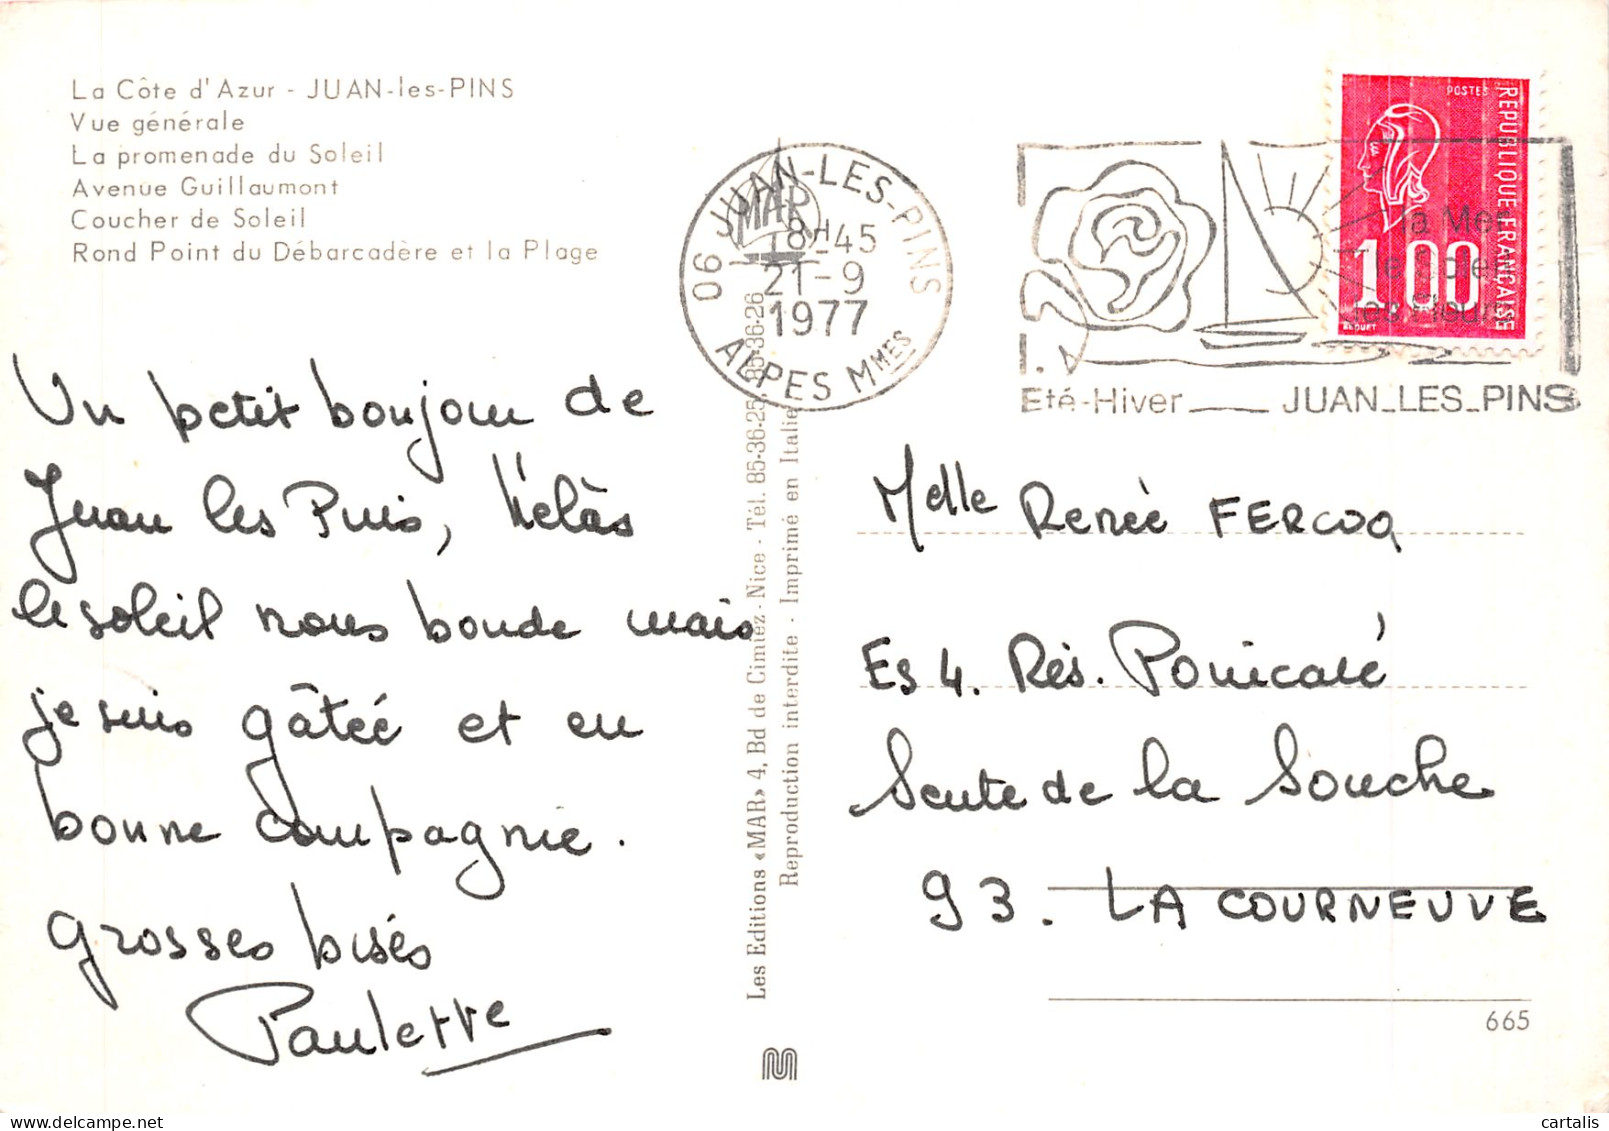 La Côte d'Azur - JUAN-les-PINS
Vue générale
La promenade du Soleil
Avenue Guillaumont
Coucher de Soleil
Rond Point du Débarcadère et la Plage
Un petit bonjour de
Juan les Pins, hélàs
le soleil nous boude mais
je suis gâtée et en
bonne compagnie.
grosses bisés
Paulette
Les Editions «MAR» 4, Bd de Cimiez - Nice - Tél. 85-36-25, 85-36-26
Reproduction interdite - Imprimé en Italie
MAR
06 JUAN-LES-PINS
18H45
21-9
1977
ALPES Mmes
la Mer
le Soleil
les Fleurs
Eté-Hiver JUAN_LES_PINS
POSTES
REPUBLIQUE FRANÇAISE
1,00
BEQUET
Melle Renée FERCOQ
Es 4. Rés.
Sente de la Souche
93. LA COURNEUVE
665
cartalis
delcampe.net